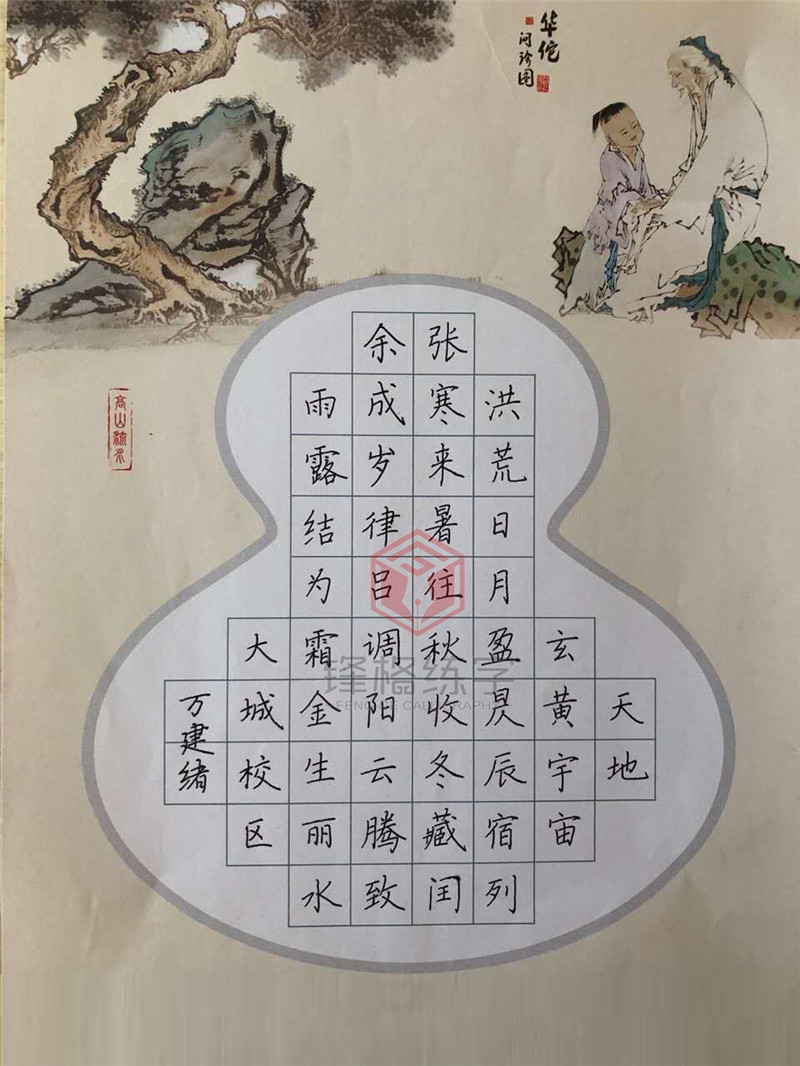 华佗
问诊图
高山流水
天地
玄黄宇宙
洪荒日月盈昃辰宿列
张寒来暑往秋收冬藏闰
余成岁律吕调阳云腾致
雨露结为霜金生丽水
大城校区
万建绪
锋格练字
FENGGE CALLIGRAPHY